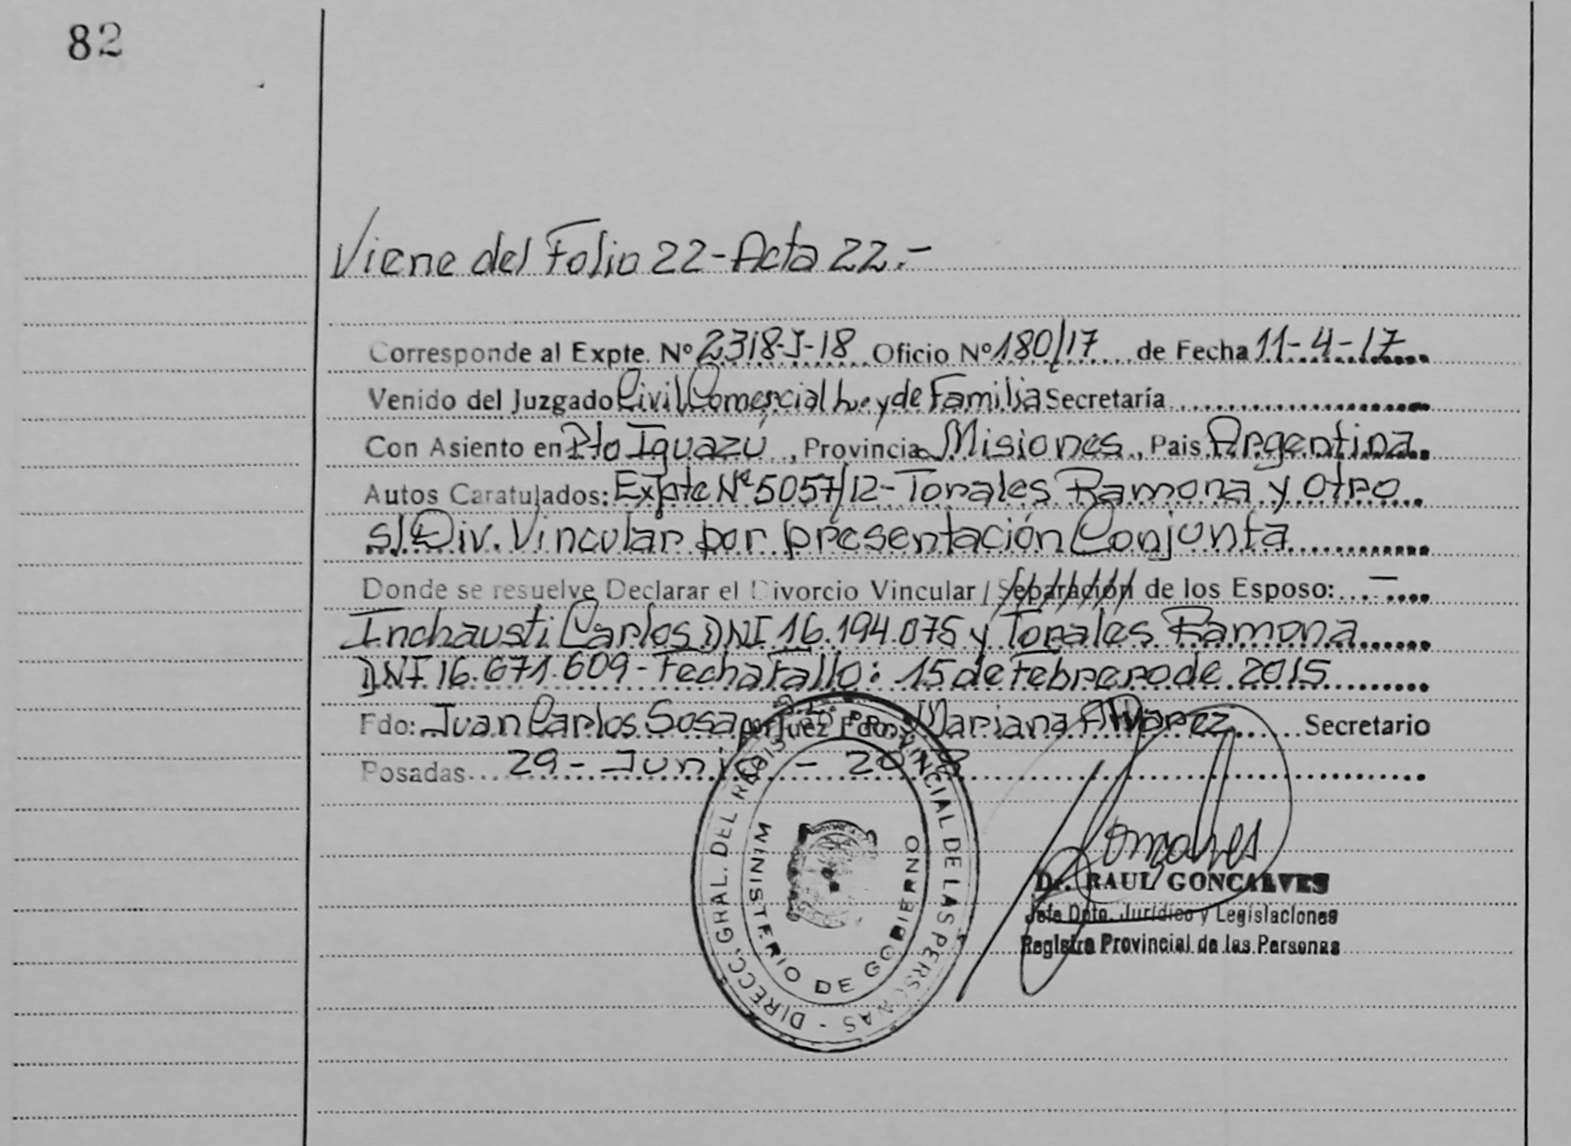 82
Viene del Folio 22-Acta 22.-
Corresponde al Expte. Nº 2318-J-18 Oficio Nº 180/17 de Fecha 11-4-17
Venido del Juzgado Civil, Comercial y de Familia Secretaría
Con Asiento en Pto Iguazú, Provincia Misiones, Pais Argentina.
Autos Caratulados: Expte Nº 5057/12-Torales Ramona y otro
s/Div. Vincular por presentación Conjunta
Donde se resuelve Declarar el Divorcio Vincular / Separación de los Esposo: -
Inchausti Carlos DNI 16.194.075 y Torales Ramona
DNI 16.671.609-Fecha Fallo: 15 de Febrero de 2015
Fdo: Juan Carlos Sosa Juez Fdo: Mariana Alvarez Secretario
Posadas 29-Junio-2018
DIRECC. GRAL. DEL REGISTRO PROVINCIAL DE LAS PERSONAS -
MINISTERIO DE GOBIERNO
Goncalves
Dr. RAUL GONCALVES
Jefe Dpto. Jurídico y Legislaciones
Registro Provincial de las Personas